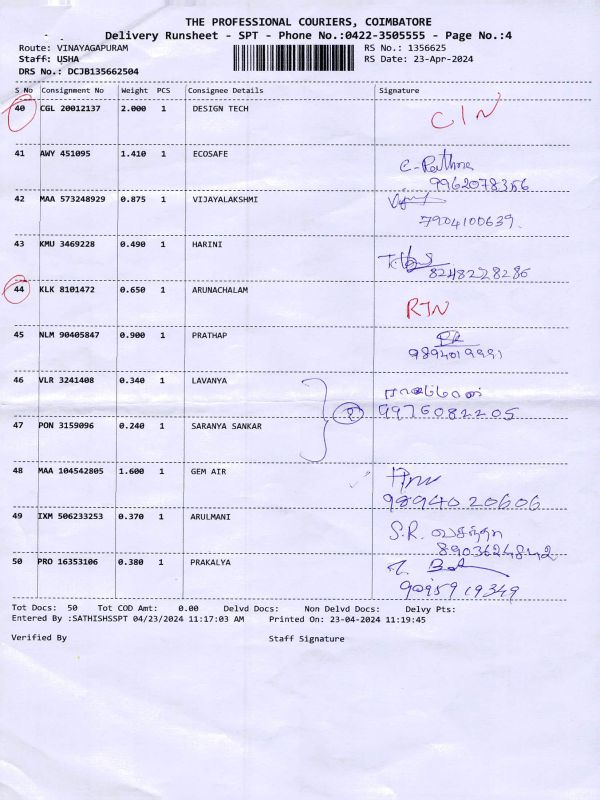 THE PROFESSIONAL COURIERS, COIMBATORE
Delivery Runsheet - SPT - Phone No.:0422-3505555 - Page No.:4
Route: VINAYAGAPURAM RS No.: 1356625
Staff: USHA RS Date: 23-Apr-2024
DRS No.: DCJB135662504
S No Consignment No Weight PCS Consignee Details Signature
40 CGL 20012137 2.000 1 DESIGN TECH CIN
41 AWY 451095 1.410 1 ECOSAFE
9962078366
42 MAA 573248929 0.875 1 VIJAYALAKSHMI
7904100639.
43 KMU 3469228 0.490 1 HARINI
8248228286
44 KLK 8101472 0.650 1 ARUNACHALAM RTN
45 NLM 90405847 0.900 1 PRATHAP
9894019991
46 VLR 3241408 0.340 1 LAVANYA
2 9976082205
47 PON 3159096 0.240 1 SARANYA SANKAR
48 MAA 104542805 1.600 1 GEM AIR
9894020606
49 IXM 506233253 0.370 1 ARULMANI S.R. வசந்தா
8903624842
50 PRO 16353106 0.380 1 PRAKALYA
9095919349
Tot Docs: 50 Tot COD Amt: 0.00 Delvd Docs: Non Delvd Docs: Delvy Pts:
Entered By :SATHISHSSPT 04/23/2024 11:17:03 AM Printed On: 23-04-2024 11:19:45
Verified By Staff Signature